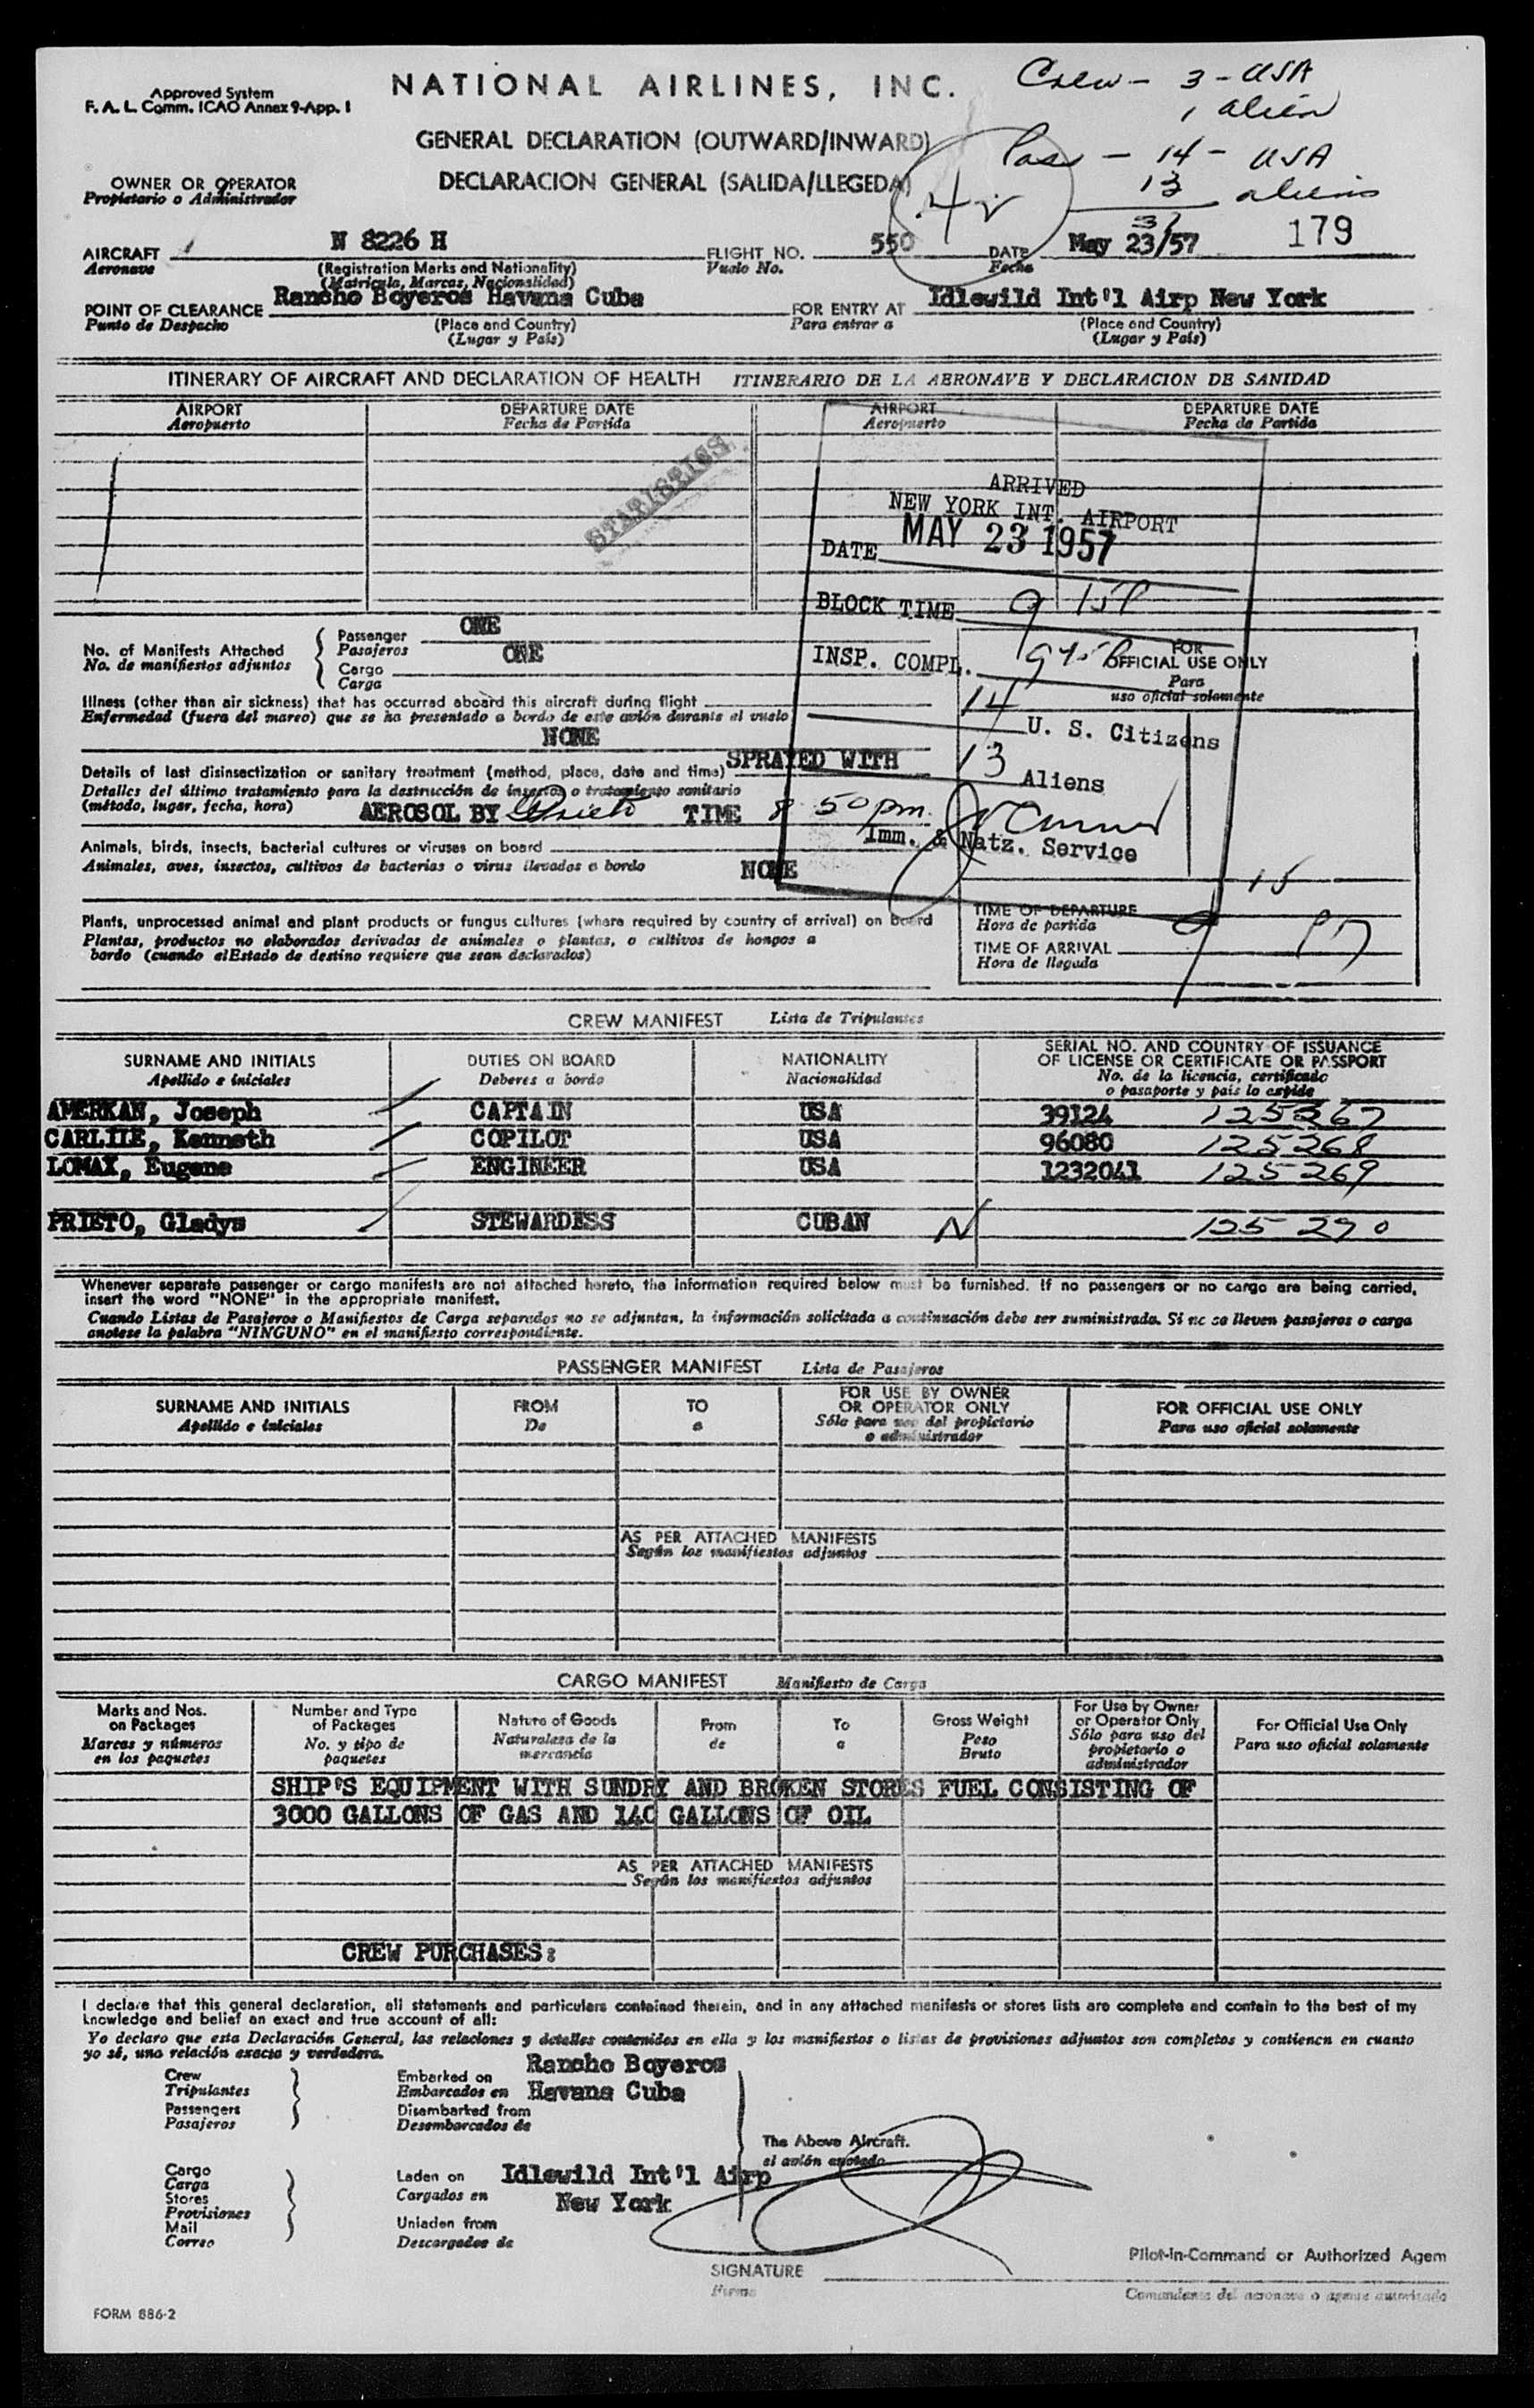 Approved System
F. A. L. Comm. ICAO Annex 9-App. 1
NATIONAL AIRLINES, INC.
Crew - 3 - USA
1 alien
GENERAL DECLARATION (OUTWARD/INWARD)
Pass - 14 - USA
13 aliens
31
DECLARACION GENERAL (SALIDA/LLEGEDA)
OWNER OR OPERATOR
Propietario o Administrador
179
AIRCRAFT N 8226 H FLIGHT NO. 550 DATE May 23/57
Aeronave (Registration Marks and Nationality) Vuelo No. Fecha
(Matricula, Marcas, Nacionalidad)
POINT OF CLEARANCE Rancho Boyeros Havana Cuba FOR ENTRY AT Idlewild Int'l Airp New York
Punto de Despacho (Place and Country) Para entrar a (Place and Country)
(Lugar y País) (Lugar y País)
ITINERARY OF AIRCRAFT AND DECLARATION OF HEALTH ITINERARIO DE LA AERONAVE Y DECLARACION DE SANIDAD
AIRPORT DEPARTURE DATE AIRPORT DEPARTURE DATE
Aeropuerto Fecha de Partida Aeropuerto Fecha de Partida
STATISTICS
ARRIVED
NEW YORK INT. AIRPORT
DATE MAY 23 1957
BLOCK TIME 9 15P
INSP. COMPL.
14 U. S. Citizens
13 Aliens
Imm. & Natz. Service
No. of Manifests Attached Passenger ONE
No. de manifiestos adjuntos Pasajeros
Cargo ONE
Carga
FOR
OFFICIAL USE ONLY
Para
uso oficial solamente
Illness (other than air sickness) that has occurred aboard this aircraft during flight
Enfermedad (fuera del mareo) que se ha presentado a bordo de este avión durante el vuelo
NONE
Details of last disinsectization or sanitary treatment (method, place, date and time) SPRAYED WITH
Detalles del último tratamiento para la destrucción de insectos o tratamiento sanitario
(método, lugar, fecha, hora) AEROSOL BY GPrieto TIME 8 50 pm.
Animals, birds, insects, bacterial cultures or viruses on board
Animales, aves, insectos, cultivos de bacterias o virus llevados a bordo NONE
Plants, unprocessed animal and plant products or fungus cultures (where required by country of arrival) on board
Plantas, productos no elaborados derivados de animales o plantas, o cultivos de hongos a
bordo (cuando elEstado de destino requiere que sean declarados)
TIME OF DEPARTURE
Hora de partida
TIME OF ARRIVAL 9 15 PM
Hora de llegada
CREW MANIFEST Lista de Tripulantes
SURNAME AND INITIALS DUTIES ON BOARD NATIONALITY SERIAL NO. AND COUNTRY OF ISSUANCE
OF LICENSE OR CERTIFICATE OR PASSPORT
Apellido e iniciales Deberes a bordo Nacionalidad No. de la licencia, certificado
o pasaporte y pais lo expide
AMERKAN, Joseph CAPTAIN USA 39124 125267
CARLILE, Kenneth COPILOT USA 96080 125268
LOMAX, Eugene ENGINEER USA 1232041 125269
PRIETO, Gladys STEWARDESS CUBAN N 125 270
Whenever separate passenger or cargo manifests are not attached hereto, the information required below must be furnished. If no passengers or no cargo are being carried,
insert the word "NONE" in the appropriate manifest.
Cuando Listas de Pasajeros o Manifiestos de Carga separados no se adjuntan, la información solicitada a continuación debe ser suministrada. Si nc se lleven pasajeros o carga
anotese la palabra "NINGUNO" en el manifiesto correspondiente.
PASSENGER MANIFEST Lista de Pasajeros
SURNAME AND INITIALS FROM TO FOR USE BY OWNER FOR OFFICIAL USE ONLY
OR OPERATOR ONLY
Apellido e iniciales De a Sólo para uso del propietario Para uso oficial solamente
o administrador
AS PER ATTACHED MANIFESTS
Según los manifiestos adjuntos
CARGO MANIFEST Manifiesto de Carga
Marks and Nos. on Packages Number and Type of Packages Nature of Goods From To Gross Weight For Use by Owner or Operator Only For Official Use Only
Marcas y números en los paquetes No. y tipo de paquetes Naturaleza de la mercancía de a Peso Bruto Sólo para uso del propietario o administrador Para uso oficial solamente
SHIP'S EQUIPMENT WITH SUNDRY AND BROKEN STORES FUEL CONSISTING OF
3000 GALLONS OF GAS AND 140 GALLONS OF OIL
AS PER ATTACHED MANIFESTS
Según los manifiestos adjuntos
CREW PURCHASES:
I declare that this general declaration, all statements and particulars contained therein, and in any attached manifests or stores lists are complete and contain to the best of my
knowledge and belief an exact and true account of all:
Yo declaro que esta Declaración General, las relaciones y detalles contenidos en ella y los manifiestos o listas de provisiones adjuntos son completos y contienen en cuanto
yo sé, una relación exacta y verdadera.
Crew Embarked on Rancho Boyeros
Tripulantes Embarcados en Havana Cuba
Passengers Disembarked from
Pasajeros Desembarcados de
The Above Aircraft.
el avión anotado
Cargo Laden on Idlewild Int'l Airp
Carga Cargados en New York
Stores
Provisiones
Mail Unladen from
Correo Descargados de
SIGNATURE Pilot-in-Command or Authorized Agent
Firma Comandante del aeronave o agente autorizado
FORM 886-2